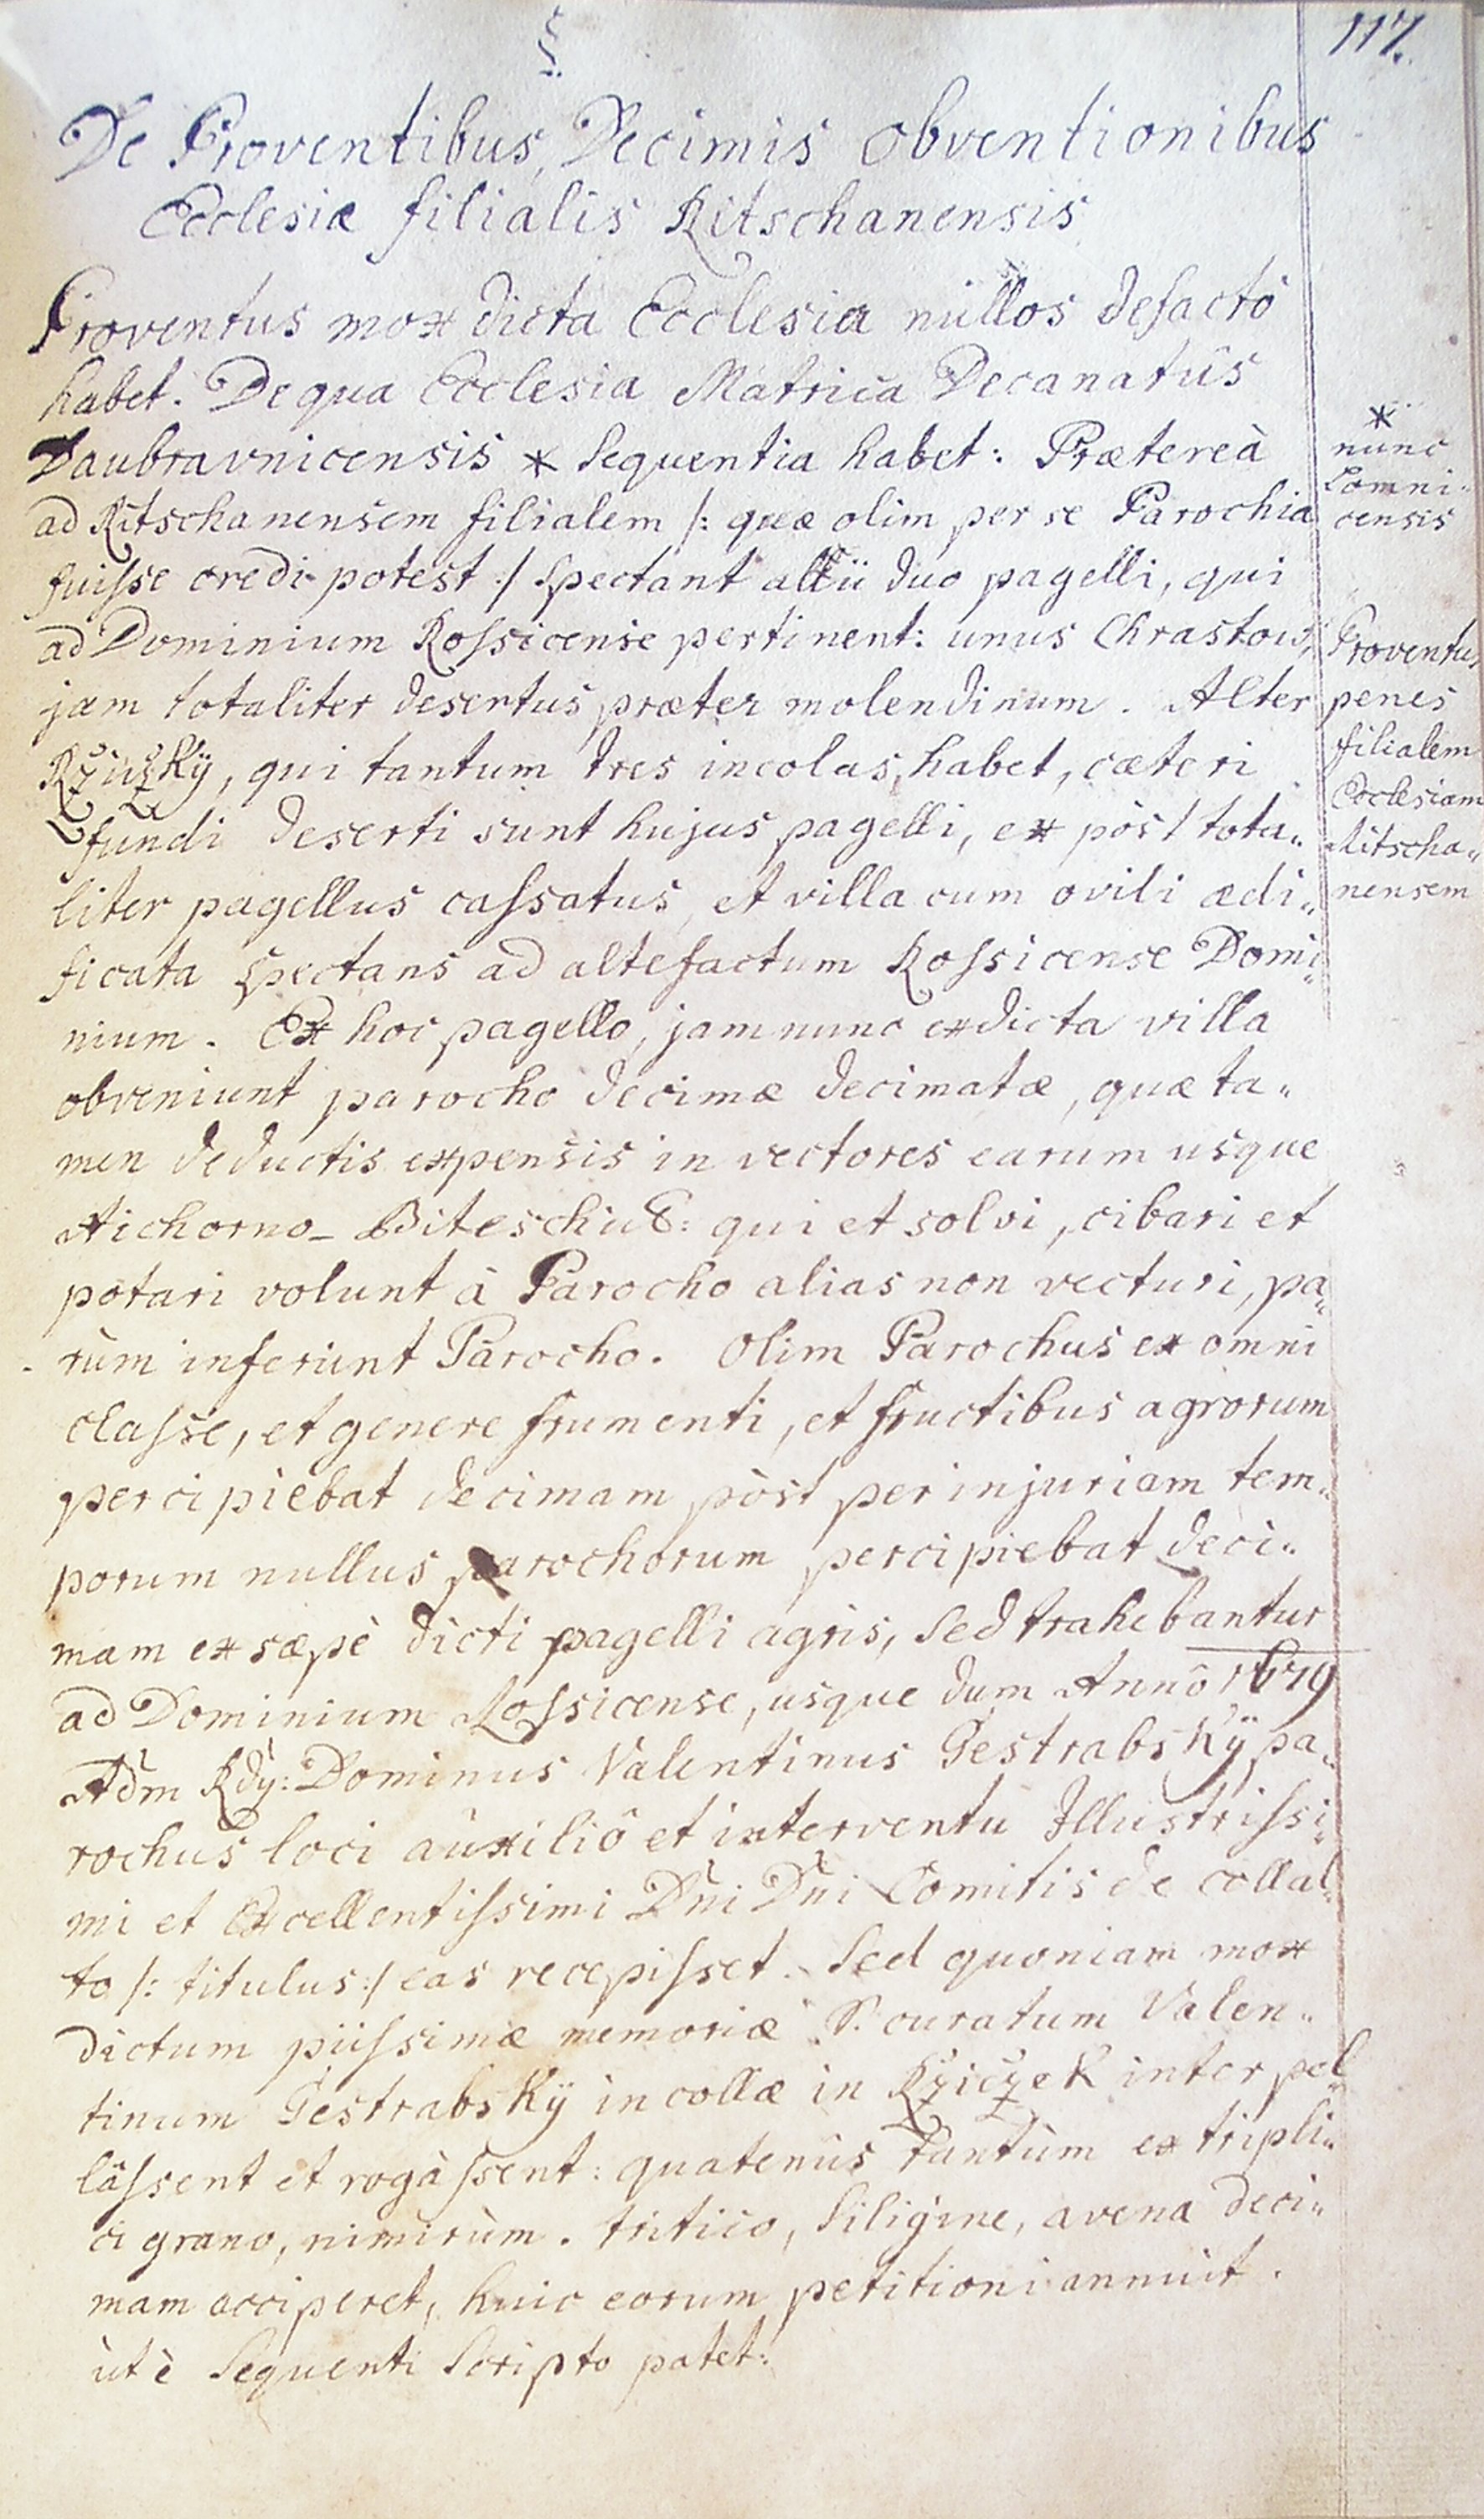 117.
§.
De Proventibus, Decimis obventionibus
Ecclesiæ filialis Ritschanensis
Proventus mox dicta Ecclesia nullos defacto
habet. De qua Ecclesia Matrica Decanatûs
Daubravnicensis * sequentia habet: Prætereà
ad Ritschanensem filialem /: quæ olim per se Parochia
fuisse credi potest :/ spectant alii duo pagelli, qui
ad Dominium Rossicense pertinent: unus Chrastow,
jam totaliter desertus præter molendinum. Alter
qui tantum tres incolas, habet, cæteri
fundi deserti sunt hujus pagelli, ex pòst tota„
liter pagellus cassatus, et villa cum ovili ædi„
ficata spectans ad altefactum Rossicense Domi„
nium. Ex hoc pagello, jam nunc exdicta villa
obveniunt parocho decimæ decimatæ, quæ ta„
men deductis expensis in vectores earum usque
Aichorno-Biteschium: qui et solvi, cibari et
potari volunt à Parocho alias non vecturi, pa„
rùm inferunt Parocho. Olim Parochus ex omni
classe, et genere frumenti, et fructibus agrorum
percipiebat decimam pòst per injuriam tem„
porum nullus parochorum percipiebat deci„
mam ex sæpè dicti pagelli agris, sed trahebantur
ad Dominium Rossicense, usque dum Annô 1679
Adm Rdÿ: Dominus Valentinus Gestrabskÿ pa„
rochus loci auxiliô et interventu Illustrissi„
mi et Excellentissimi Dñi Dñi Comitis de Collal„
to /: titulus :/ eas recepisset. Sed quoniam mox
dictum piissimæ memoriæ P. curatum Valen„
tinum Gestrabskÿ incollæ in Ržiček interpel„
lâssent et rogàssent: quatenùs tantùm ex tripli„
ci grano, nimirùm. tritico, siligine, avena deci„
mam acciperet, huic eorum petitioni annuit.
ùt è sequenti scripto patet:
*
nunc
Lomni„
censis
Proventus
penes
filialem
Ecclesiam
Ritscha„
nensem